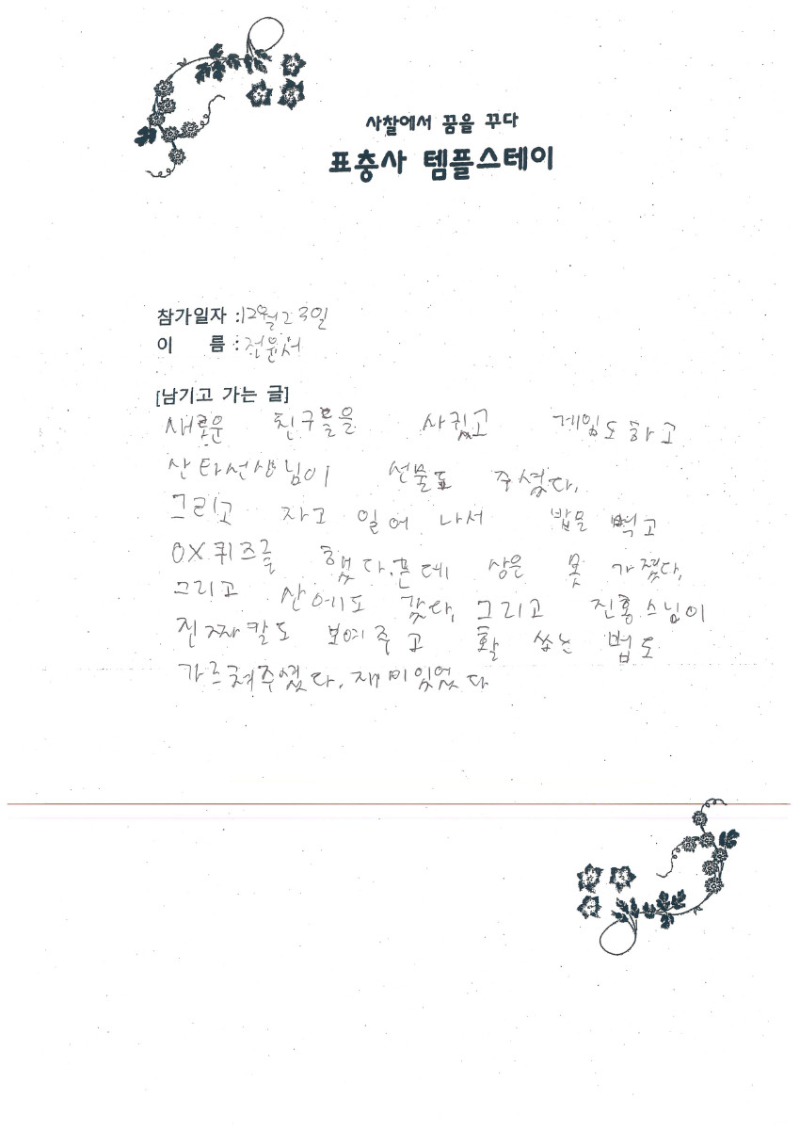 사찰에서 꿈을 꾸다
표충사 템플스테이
참가일자 : 12월 23일
이 름 : 전윤서
[남기고 가는 글]
새로운 친구들을 사귔고 게임도 하고
산타선생님이 선물도 주셨다.
그리고 자고 일어 나서 밥을 먹고
OX퀴즈를 했다. 근데 상은 못 가졌다.
그리고 산에도 갔다. 그리고 진홍스님이
진짜칼도 보여주고 활 쏘는 법도
가르쳐주셨다. 재미있었다